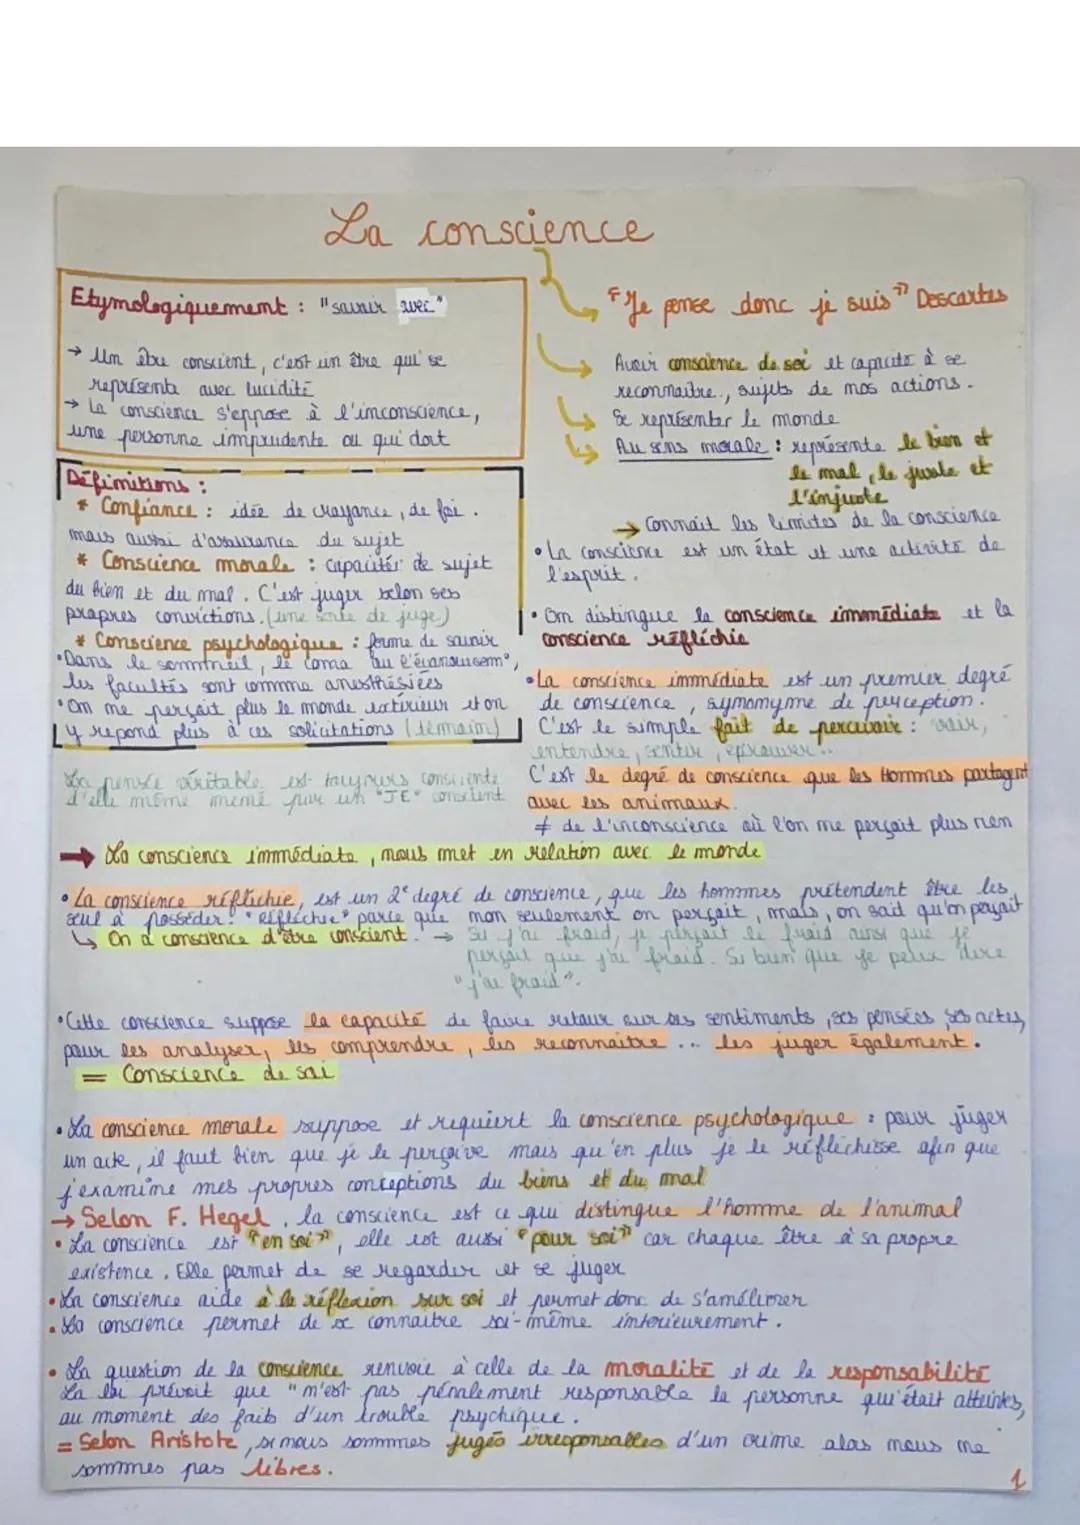 La conscience
Etymologiquement : "savoir avec"
→ Un être conscient, c'est un être qui se
représente avec lucidité
→ La conscience s'oppose à l'inconscience,
une personne imprudente ou qui dort
Définitions :
* Confiance : idée de croyance, de foi.
mais aussi d'assurance du sujet
* Conscience morale : capacité de sujet
du bien et du mal. C'est juger selon ses
propres convictions. (une sorte de juge)
* Conscience psychologique : forme de savoir
• Dans le sommeil, le coma ou l'évanouissem°,
les facultés sont comme anesthésiées
• On ne perçoit plus le monde extérieur et on
y répond plus à ces solicitations (témoin)
La pensée véritable est toujours consciente
d'elle même mené par un "JE" conscient
"Je pense donc je suis" Descartes
Avoir conscience de soi et capacité à se
reconnaître, sujets de nos actions.
Se représenter le monde
Au sens morale : représente le bien et
le mal, le juste et
l'injuste
→ Connait les limites de la conscience
• La conscience est un état et une activité de
l'esprit.
• On distingue la conscience immédiate et la
conscience réfléchie
• La conscience immédiate est un premier degré
de conscience, synonyme de perception.
C'est le simple fait de percevoir : voir,
entendre, sentir, éprouver..
C'est le degré de conscience que les Hommes partagent
avec les animaux.
≠ de l'inconscience où l'on ne perçoit plus rien
→ La conscience immédiate, nous met en relation avec le monde
• La conscience réfléchie, est un 2e degré de conscience, que les hommes prétendent être les
seul à posséder. "Réfléchie" parce que non seulement on perçoit, mais, on said qu'on perçoit
↳ On a conscience d'être conscient. → Si j'ai fraid, je perçoit le froid ainsi que je
perçoit que j'ai fraid. Si bien que je peux dire
"j'ai fraid".
• Cette conscience suppose la capacité de faire retour sur ses sentiments, ses pensées, ses actes,
pour les analyser, les comprendre, les reconnaître ... les juger également.
= Conscience de soi
• La conscience morale suppose et requiert la conscience psychologique : pour juger
un acte, il faut bien que je le perçoive mais qu'en plus je le réfléchisse afin que
j'examine mes propres conceptions du biens et du mal
→ Selon F. Hegel, la conscience est ce qui distingue l'homme de l'animal
• La conscience est "en soi", elle est aussi "pour soi" car chaque être à sa propre
existence. Elle permet de se regarder et se juger
• La conscience aide à la réflexion sur soi et permet donc de s'améliorer
• La conscience permet de se connaitre soi-même intérieurement.
• La question de la conscience renvoie à celle de la moralité et de la responsabilité
La loi prévoit que "n'est pas pénalement responsable la personne qui était atteintes,
au moment des faits d'un trouble psychique.
= Selon Aristote, si nous sommes jugés irresponsables d'un crime alors nous ne
sommes pas libres.
1